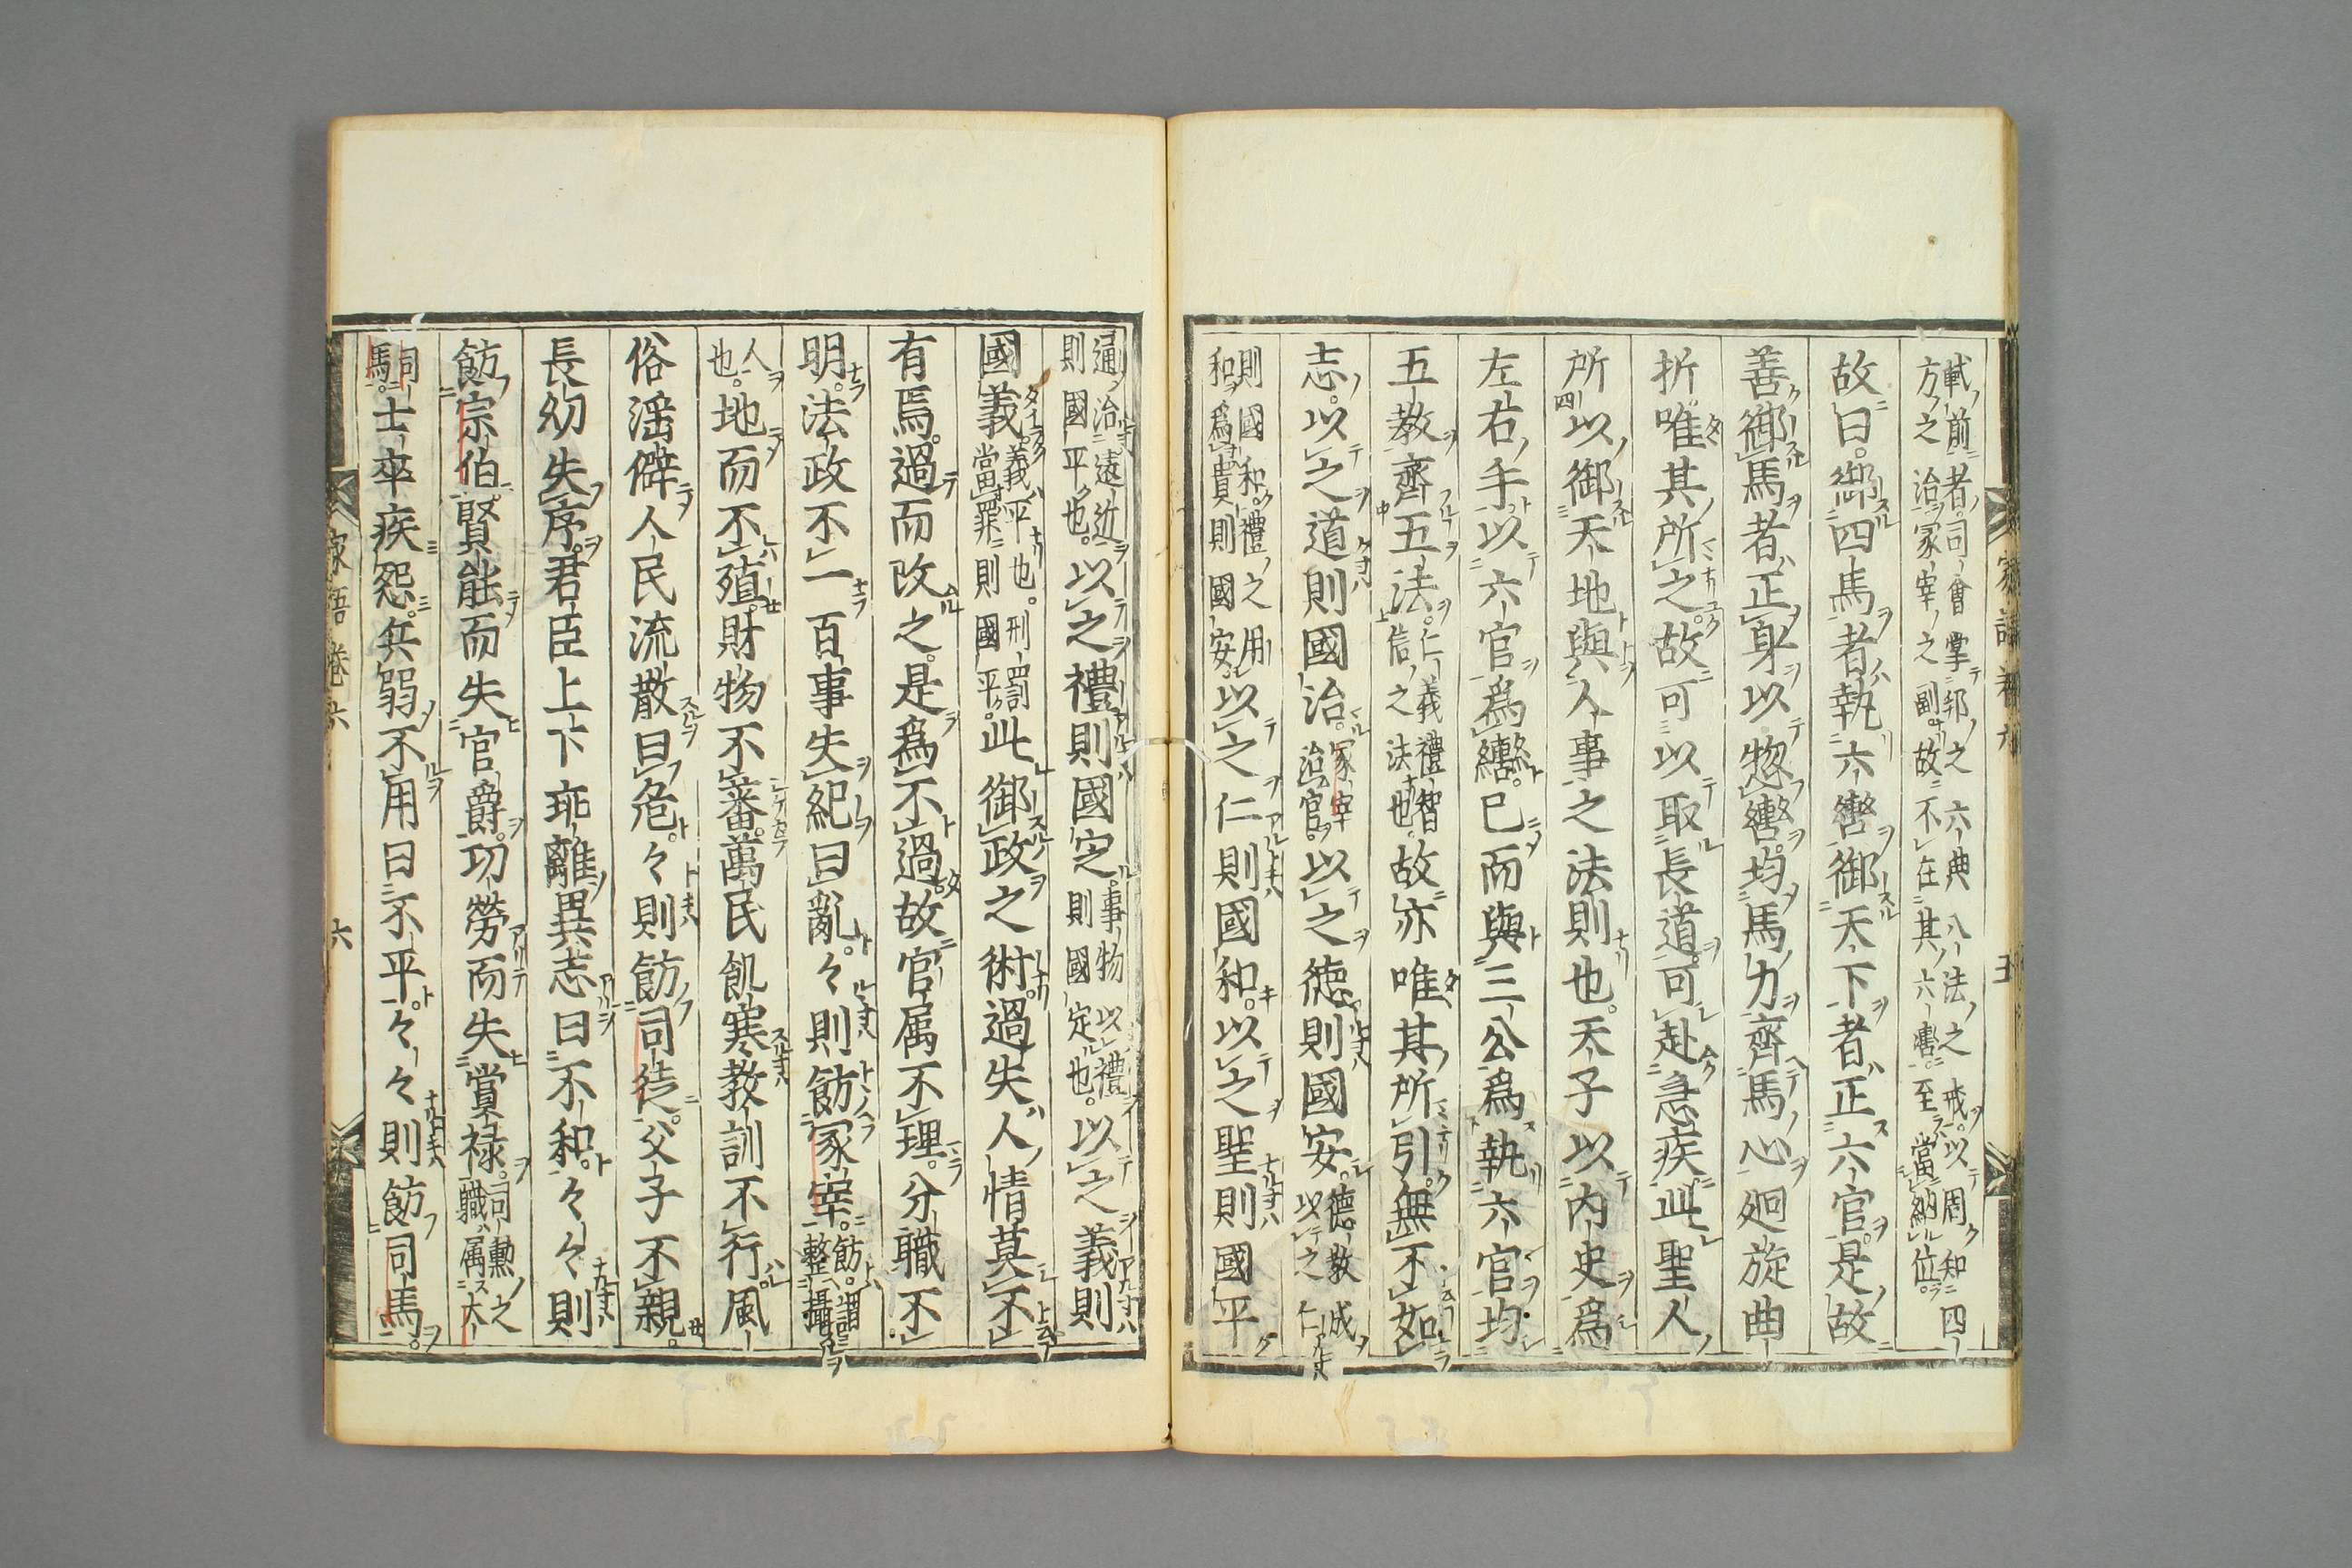 軾前者司會掌邦之六典八法之戒以周知四
方之治冢宰之副故不在其六轡至當納位
故曰御四馬者執六轡御天下者正六官是故
善御馬者正身以惣轡均馬力齊馬心廻旋曲
折唯其所之故可以取長道可赴急疾此聖人
所以御天地與人事之法則也天子以内史爲
左右手以六官爲轡已而與三公爲執六官均
五教齊五法仁義禮智信之法也故亦唯其所引無不如
志以之道則國治冢宰治官以之德則國安德教成以之仁
則國和禮之用和爲貴則國安以之仁則國和以之聖則國平
通治遠近則國平也以之禮則國定事物以禮則國定也以之義則
國義義平也刑罰當罪則國平此御政之術過失人情莫不
有焉過而改之是爲不過故官属不理分職不
明法政不一百事失紀曰亂々則飭冢宰飭謂整攝
人也地而不殖財物不蕃萬民飢寒教訓不行風
俗淫僻人民流散曰危々則飭司徒父子不親
長幼失序君臣上下乖離異志曰不和々々則
飭宗伯賢能而失官爵功勞而失賞禄司勲之職属大
司馬士卒疾怨兵弱不用曰不平々々則飭司馬
家語卷六
六